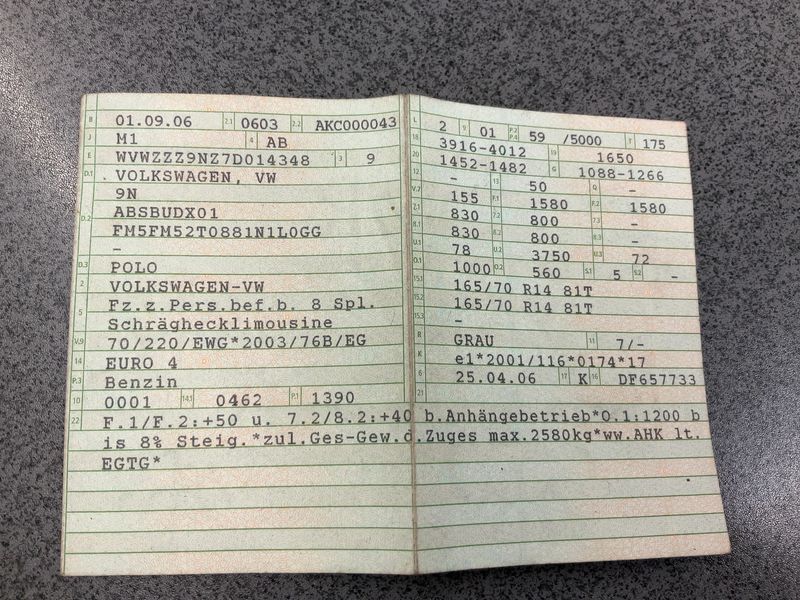 B 01.09.06 2.1 0603 2.2 AKC000043
J M1 4 AB
E WVWZZZ9NZ7D014348 3 9
D.1 VOLKSWAGEN, VW
9N
D.2 ABSBUDX01
FM5FM52T0881N1L0GG
-
D.3 POLO
2 VOLKSWAGEN-VW
5 Fz.z.Pers.bef.b. 8 Spl.
Schräghecklimousine
V.9 70/220/EWG*2003/76B/EG
14 EURO 4
P.3 Benzin
10 0001 14.1 0462 P.1 1390
L 2 9 01 P.2 P.4 59 /5000 T 175
18 3916-4012 19 1650
20 1452-1482 G 1088-1266
12 - 13 50 Q -
V.7 155 F.1 1580 F.2 1580
7.1 830 7.2 800 7.3 -
8.1 830 8.2 800 8.3 -
U.1 78 U.2 3750 U.3 72
O.1 1000 O.2 560 S.1 5 S.2 -
15.1 165/70 R14 81T
15.2 165/70 R14 81T
15.3 -
R GRAU 11 7/-
K e1*2001/116*0174*17
6 25.04.06 17 K 16 DF657733
21
22 F.1/F.2:+50 u. 7.2/8.2:+40 b.Anhängebetrieb*O.1:1200 b
is 8% Steig.*zul.Ges-Gew.d.Zuges max.2580kg*ww.AHK lt.
EGTG*